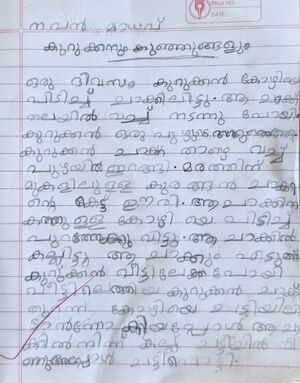 PAGE NO.
DATE:
നവൻ മാധവ്
കുറുക്കനും കുഞ്ഞുങ്ങളും
ഒരു ദിവസം കുറുക്കൻ കോഴിയെ
പിടിച്ച് ചാക്കിലിട്ടു. ആ ചാക്ക്
തലയിൽ വച്ച് നടന്നു പോയി
കുറുക്കൻ ഒരു
കുറുക്കൻ ചാക്ക താഴെ വച്ച്
പുഴയിൽ ഇറങ്ങി. മരത്തിന്
മുകളിലുള്ള കുരങ്ങൻ ചാക്കി
ന്റെ കെട്ട് ഊരി. ആ ചാക്കിന
കത്തു ഉള്ള കോഴി യെ പിടിച്ച്
പുറത്തേക്കു വിട്ടു. ആ ചാക്കിൽ
കല്ലിട്ടു ആ ചാക്കും എടുത്ത്
കുറുക്കൻ വീട്ടിലേക്ക പോയി
വീട്ടിലെത്തിയ കുറുക്കൻ ചാക്ക്
തുറന്ന് കോഴിയെ ചട്ടിയിലി
ടാൻ നോ ക്കിയപ്പോൾ ആ ചാ
ക്കിൽ നിന്ന് കല്ല് ചട്ടിയിൽ വീ
ണു ചട്ടിപൊട്ടി.